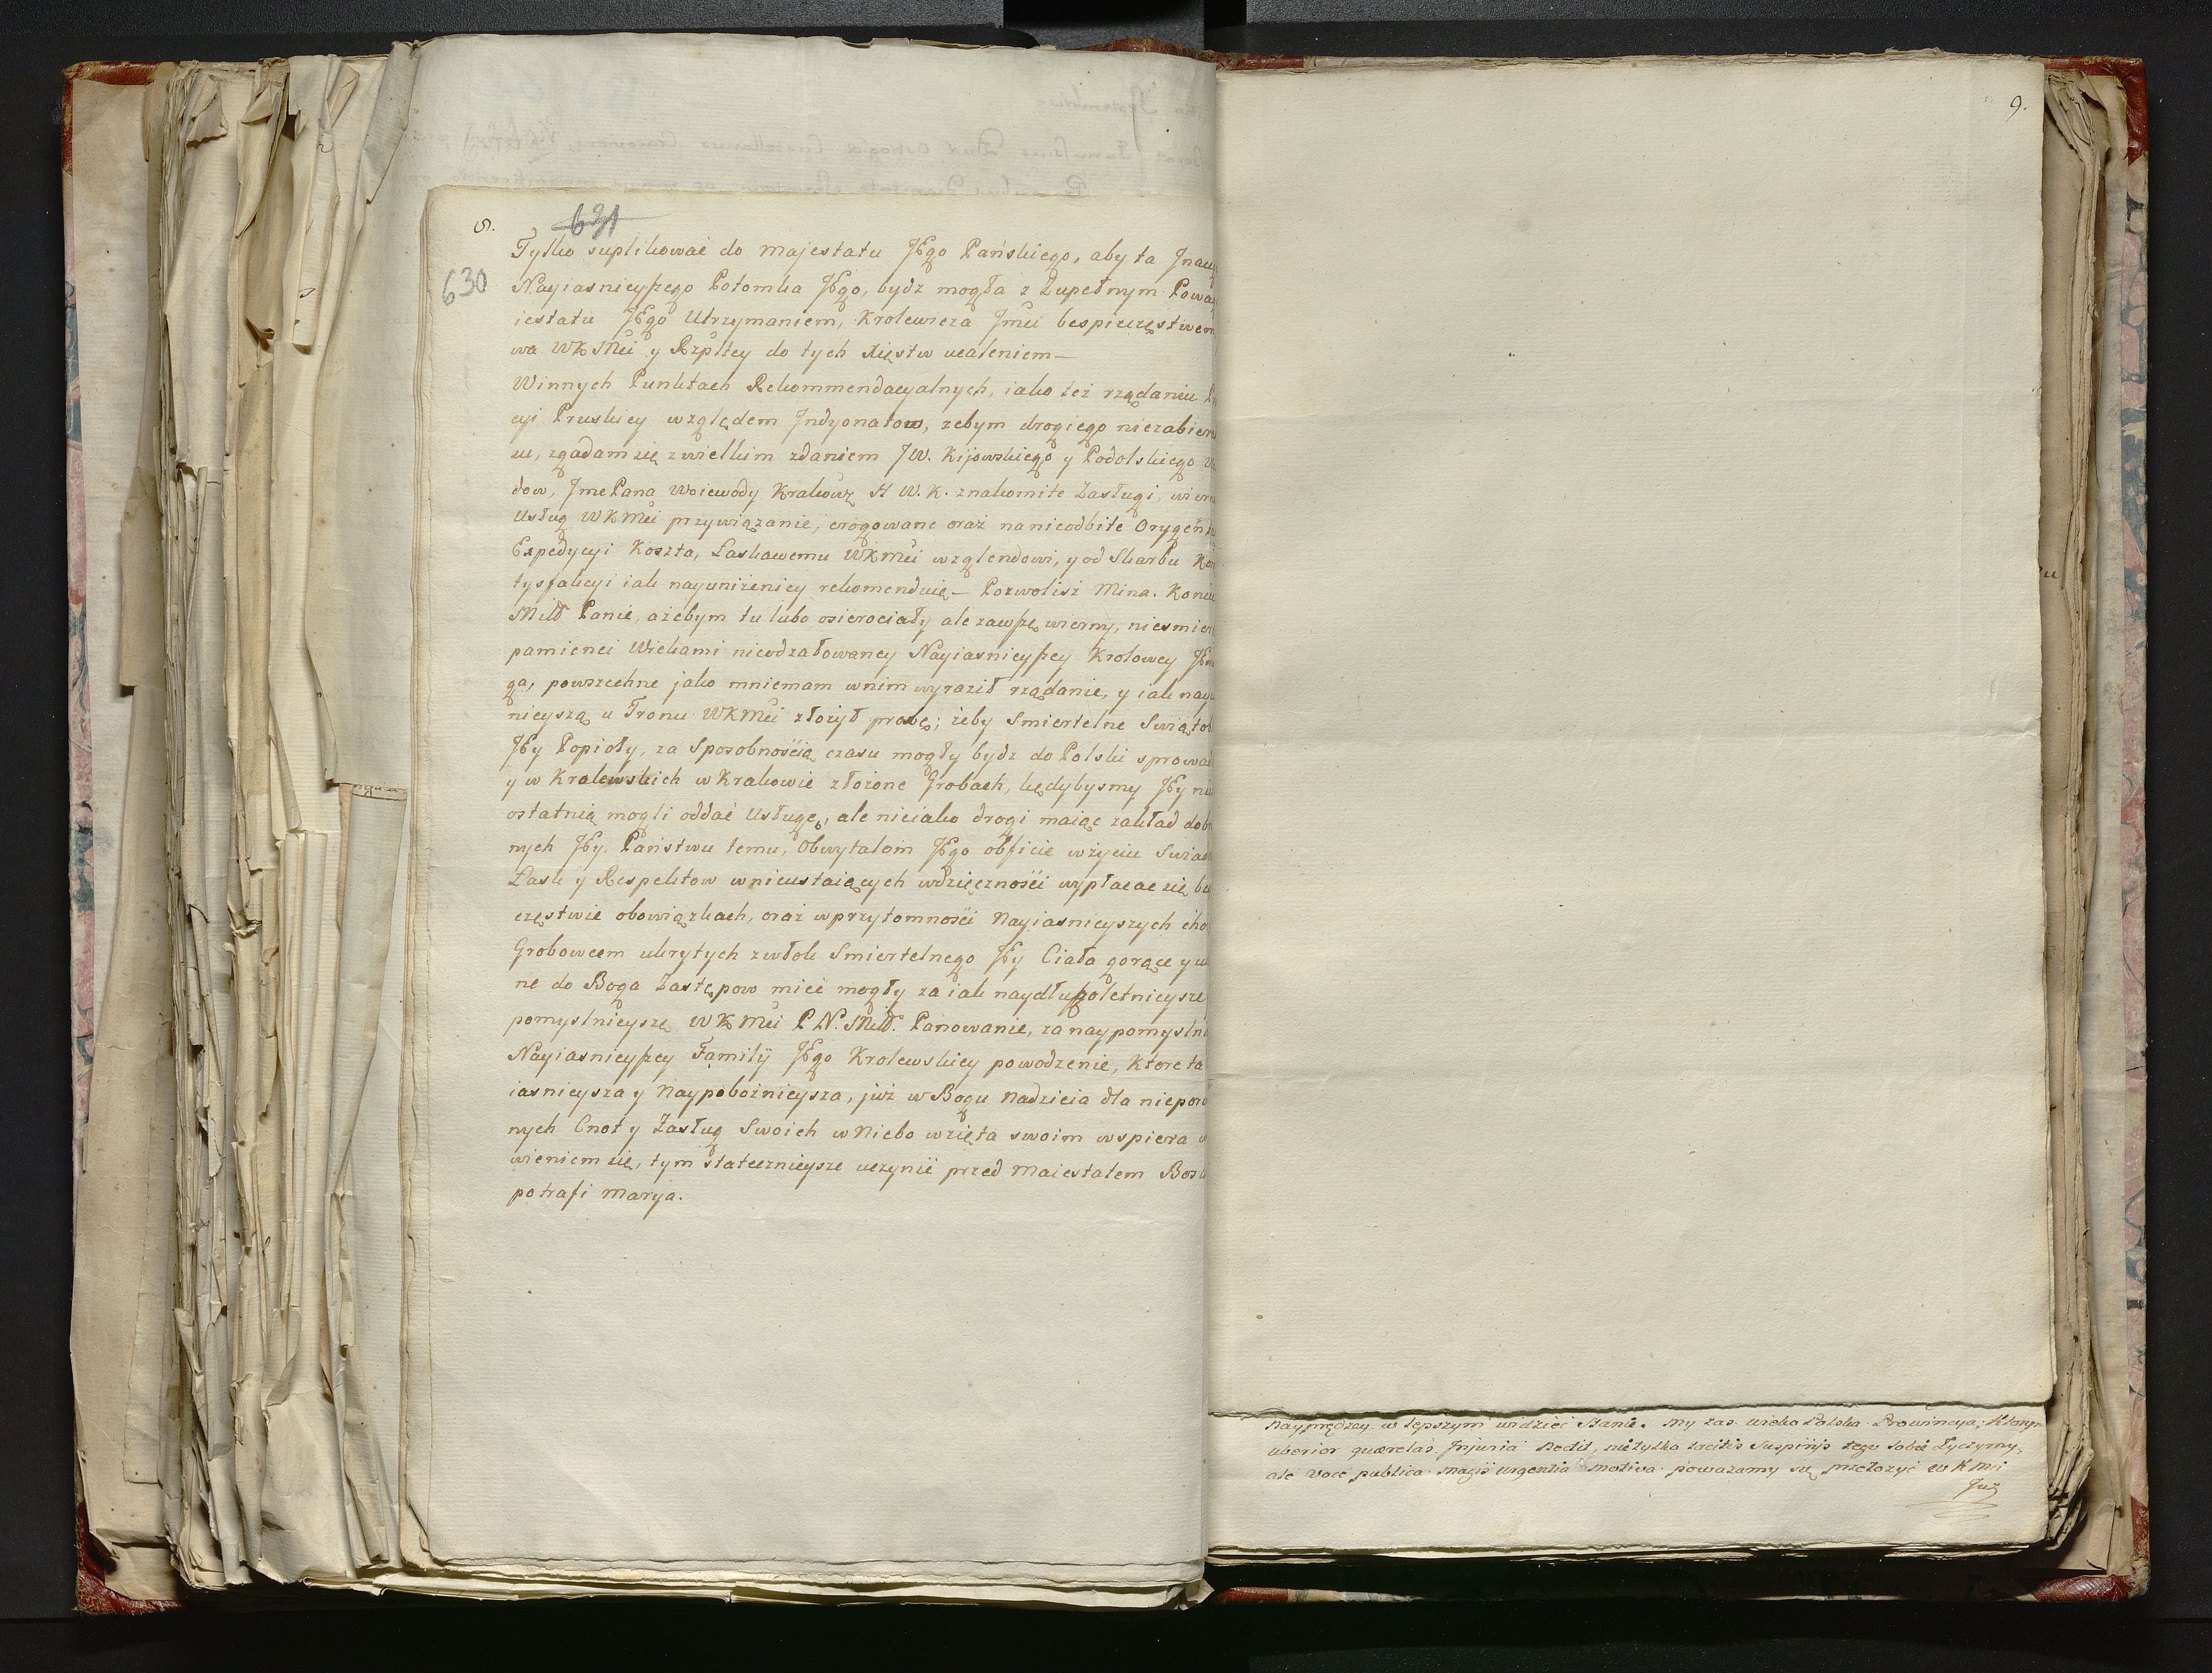 8.
631
630
Tylko suplikować do Majestatu JEgo Pańskiego, aby ta
Nayiasnieyszego Potomka JEgo, bydz mogła z Zupełnym
iestatu JEgo Utrzymaniem, Krolewicza Jmći bespieczęstwem
wa WKMći y Rzpltey do tych Xięstw ucaleniem—
Winnych Punktach Rekommendacyalnych, iako też rządaniu
cyi Pruskiey względem Indyonatow, zebym drogiego niezabier
su, zgadam się zwielkim zdaniem JW. Kijowskiego y Podolskiego
dow, Jme Pana Woiewody Krakowz H W. K. znakomite Zasługi,
Usług WKMći przywiązanie, erogowane oraz na nieodbite
Expedycyi Koszta, Łaskawemu WKMći wzglendowi, y od Skarbu
tysfakcyi iak nayuniżeniey rekomenduię— Pozwolisz Mina.
Miłł Panie, ażebym tu lubo osierociały ale zawszę wierny,
pamienci Wiekami nieodzałowaney Nayiasnieyszey Krolowey
ga, powszechne jako mniemam wnim wyraził rządanie, y iak
nieyszą u Tronu WKMći złożył prożbę; żeby Smiertelne
JEy Popioły, za Sposobnością czasu mogły bydz do Polski
y w Kralewskich w Krakowie złożone Grobach, kędybysmy JEy
ostatnią mogli oddać Usługę, ale nieiako drogi maiąc zakład
nych JEy, Państwu temu, Obwytalom JEgo obficie wżyciu
Łask y Respektow w nieustaiących wdzięczności wypłacac się
częstwie obowiązkach, oraz wprzytomności Nayiasnieyszych
Grobowcem ukrytych zwłok Smiertelnego JEy Ciała gorące y
ne do Boga Zastępow mieć mogły za iak naydłuszoletnieysze
pomyslnieysze WKMći P. N. Miłł. Panowanie, za
Nayiasnieyszey Familij JEgo Krolewskiey powodzenie, Ktore ta
iasnieysza y Naypobożnieysza, już w Bogu Nadzieia dla
nych Cnot y Zasług Swoich w Niebo wzięta swoim wspiera
wieniem się, tym statecznieysze uczynić przed Maiestatem
potrafi Marya.
9.
Naymędrzey w lepszym widzieć Stanie. My zas wielko Polska Prowincya;
uberior querelas Injuria Dedit, nietylko tacitis Suspirijs tego Sobie Życzymy,
ale voce publica magis urgentia motiva poważamy się przełożyć WKMći
Juz